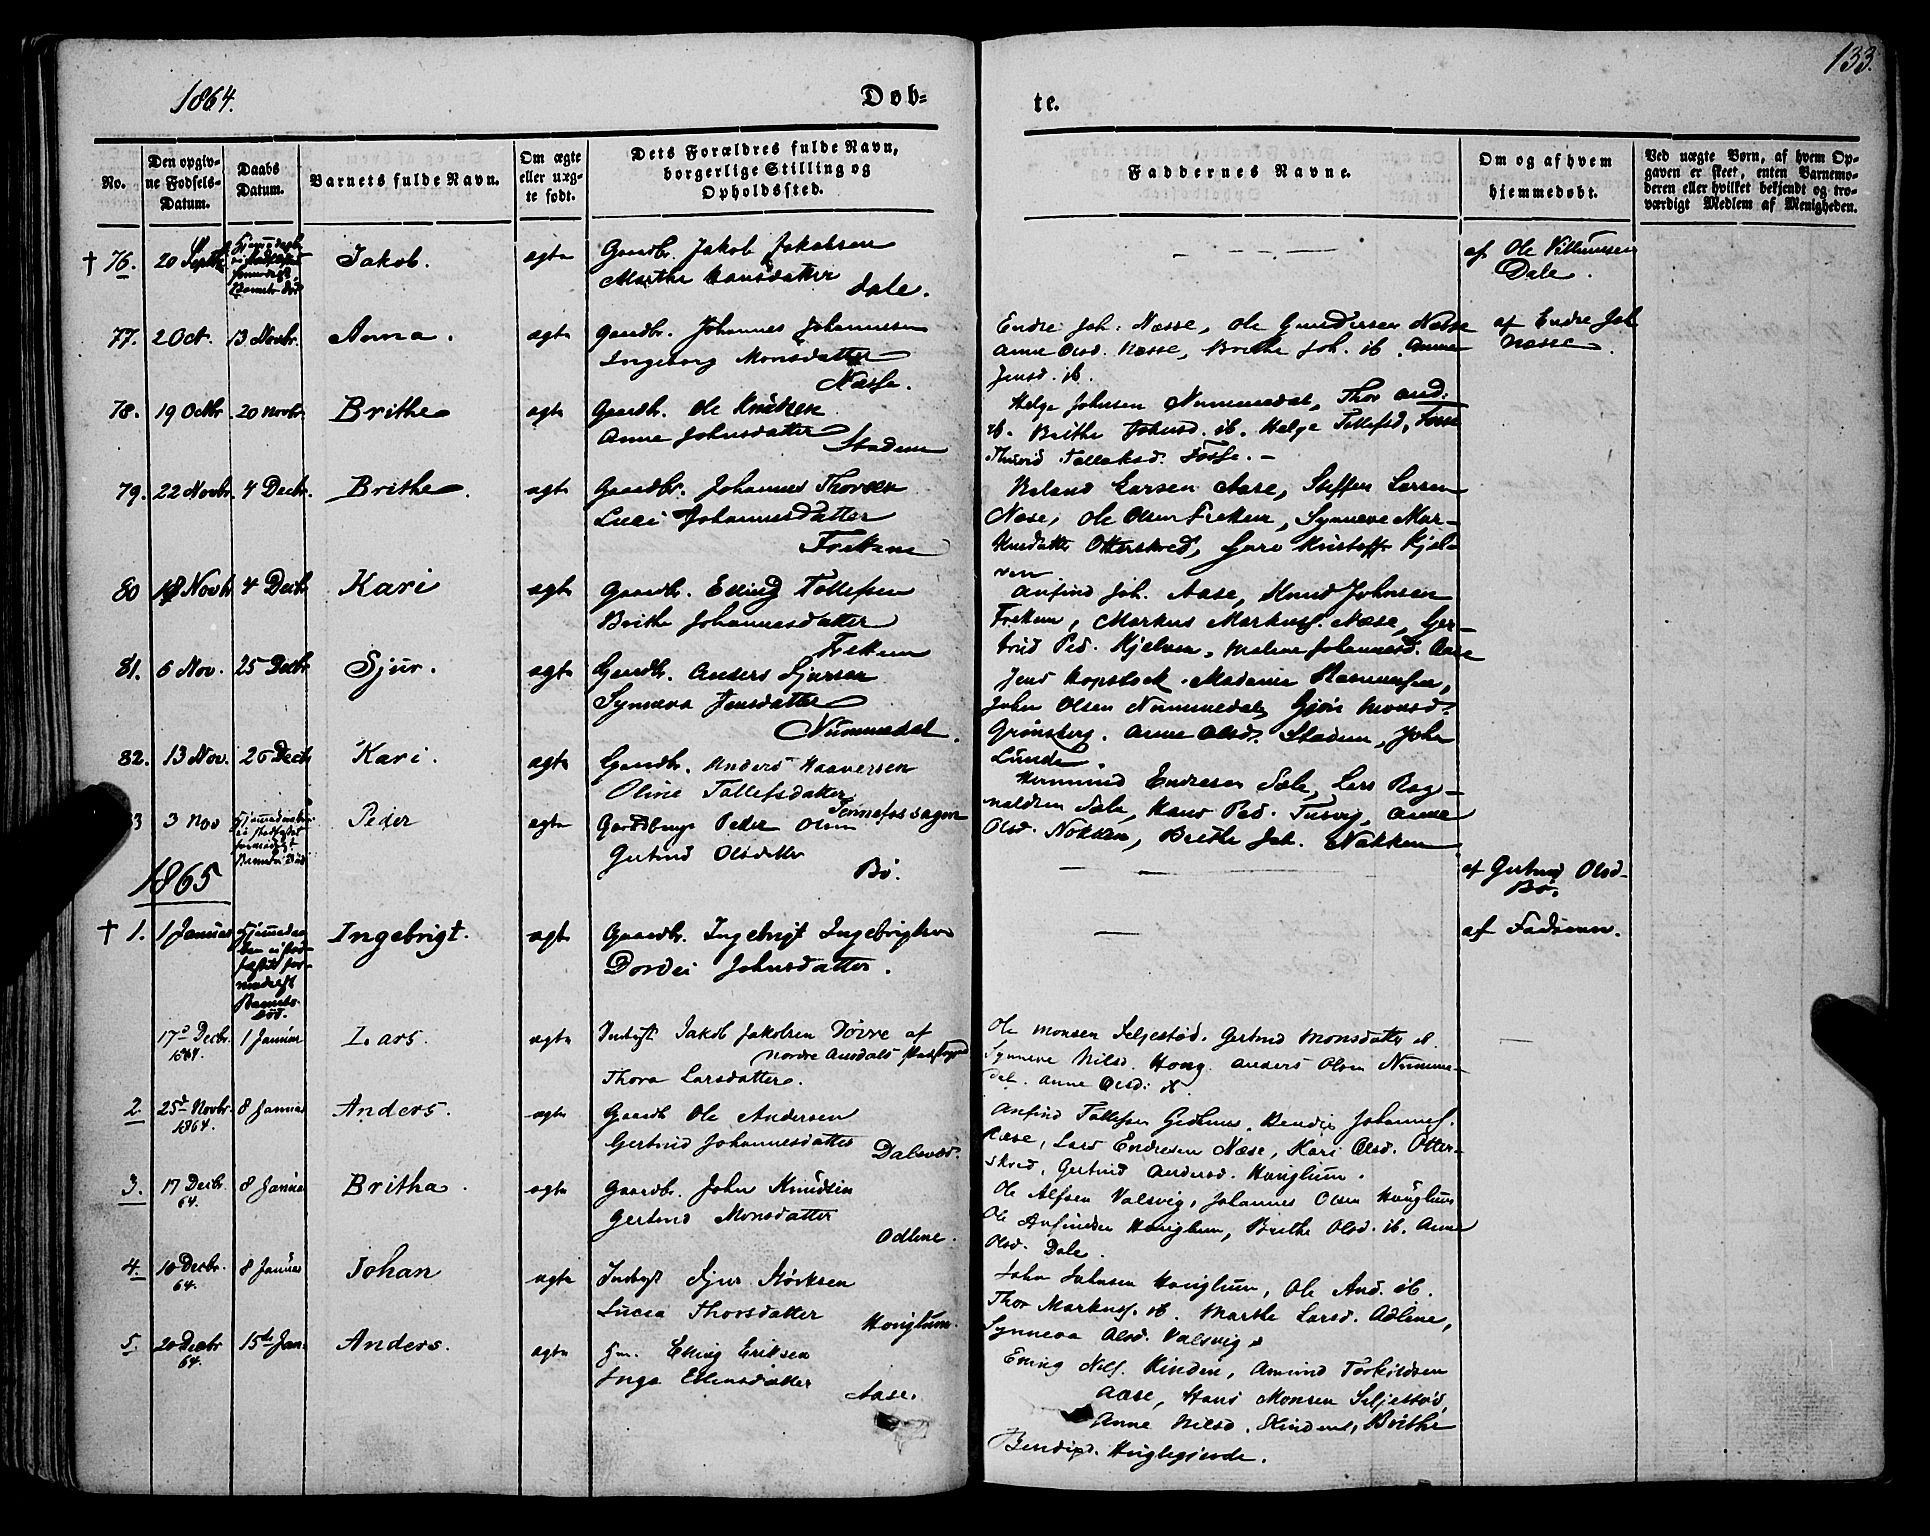 133.
1864.
Døb-
te.
No.
Den opgiv-
ne Fødsels-
Datum.
Daabs
Datum.
Barnets fulde Navn.
Om ægte
eller uæg-
te født.
Dets Forældres fulde Navn,
borgerlige Stilling og
Opholdssted.
Faddernes Navne.
Om og af hvem
hjemmedøbt.
Ved uægte Børn, af hvem Op-
gaven er skeet, enten Barnemo-
deren eller hvilket bekjendt og tro-
værdigt Medlem af Menigheden.
† 76. 20 Septbr
Jakob. ægte Gaardbr. Jakob Jakobsen
Marthe Hansdatter
Dale.
af Ole Villumsen
Dale.
77. 2 Oct. 13 Novbr. Anna. ægte Gaardbr. Johannes Johannesen
Ingeborg Monsdatter
Næsse.
Endre Joh. Næsse, Ole Gundersen Næsse
Anne Olsd. Næsse, Brithe Joh. ib. Anne
Jensd. ib.
af Endre Joh
Næsse.
78. 19 Octbr 20 Novbr. Brithe ægte Gaardb. Ole Knudsen
Anne Johnsdatter
Stadem
Helge Johnsen Nummedal, Thor And.
ib. Brithe Johnsd. ib. Helge Tollefsd, Fosse
Tollaksd. Fosse. –
79. 22 Novbr. 4 Decbr. Brithe. ægte Gaardbr. Johannes Thorsen
Luci Johannesdatter
Frekem
Larsen Aase, Steffen Larsen
Næse, Ole Olsen Frekem, Synneve Mar-
kusdatter Otterskred, Kristoffr. Hjel-
men
80 18 Novb 4 Decb Kari ægte Gaardbr. Elling Tollefsen
Brithe Johannesdatter
Frekem
Anfind Joh. Aase, Knud Johnsen
Frekem, Markus Markusf. Næse, Ger-
trud Ped. Hjelmen, Malene Johannesd. Aase
81. 6 Nov. 25 Decbr Sjur. ægte Gaardbr. Anders Sjursen
Synneva Jensdatter
Nummedal.
Jens Kopstock. Madame Rasmussen,
John Olsen Nummedal, Gjøri Monsd.
Grønsberg. Anne Olsd. Stadem, John
Lunde.
82. 13 Nov. 26 Decb Kari. ægte Gaardbr. Anders Haaversen
Oline Tollefsdatter
Tennefossagen
Hermund Endresen Sæle, Lars Rag-
naldsen Sæle, Hans Ped. Tusvig, Anne
Olsd. Nokken, Brithe Joh. Nokken
83 3 Nov
Peder ægte Gaardbruger Peder Olsen
Gertrud Olsdatter
Bø.
af Gertrud Olsd-
Bø.
1865
† 1. 1 Januar
Hjemmedaa-
ben ei stad-
fæstet for-
medelst
Barnets
Død.
Ingebrigt. ægte Gaardbr. Ingebrigt Ingebrigtsen
Dordei Johnsdatter.
af Faderen.
17de Decbr.
1864.
1 Januar Lars. ægte Inderst Jakob Jakobsen Døvre af
Nordre Aurdals Præstegjeld
Thora Larsdatter.
Ole Monsen Seljestød. Gertrud Monsdatter ib.
Synneve Nilsd. Houg. Anders Olsen Numme-
dal. Anne Olsd: ib
2. 25de Novbr.
1864.
8 Januar Anders. ægte Gaardb Ole Andersen
Gertrud Johannesdatter
Dalsvæs.
Anfind Tollefsen Johannesf.
Næse, Lars Endresen Næse, Kari Olsd. Otter-
skred, Gertrud Andersd. Houglum.
3. 17 Decbr.
64.
8 Januar Britha. ægte Gaardbr. John Knudsen
Gertrud Monsdatter
Ødline.
Ole Alfsen Valsvig, Johannes Olsen Houglum
Ole Anfindsen Houglum, Brithe Olsd. ib. Anne
Olsd. Dale.
4. 10 Decbr.
64.
8 Januar Johan ægte Inderst Sjur Størksen
Lucia Thorsdatter
Houglum.
John Johnsen Houglum, Ole And. ib.
Thor Markusf. ib. Marthe Larsd. Ødline,
Synneva Olsd. Valsvig.
5. 20 Decbr
64.
15de Jan. Anders. ægte Hm. Elling Eriksen
Inga Ellensdatter
Aase.
Elling Nilsf. Kinden, Amund Torkildsen
Aase, Hans Monsen Seljestød,
Anne Nilsd. Kinden, Brithe
Bendixd. Huglegjerde.